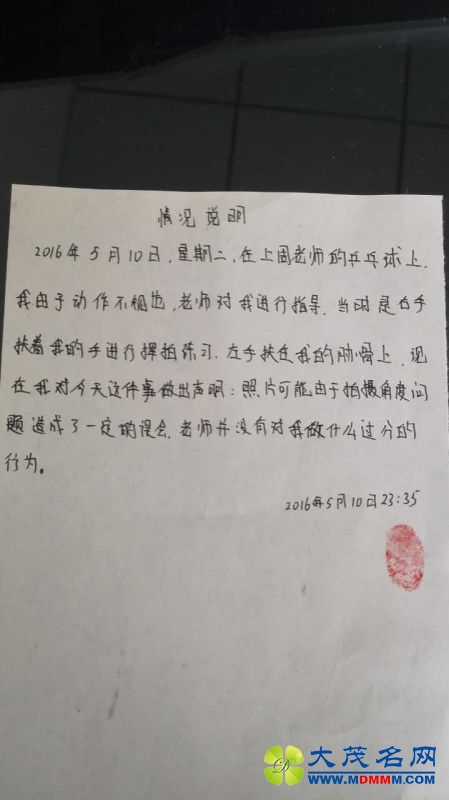 情况说明
2016年5月10日,星期二,在上周老师的乒乓球上.
我由于动作不规范,老师对我进行指导.当时是右手
扶着我的手进行挥拍练习.左手扶在我的肋骨上.现
在我对今天这件事做出声明:照片可能由于拍摄角度问
题造成了一定的误会.老师并没有对我做什么过分的
行为。
2016年5月10日23:35
大茂名网
WWW.MDMMM.COM